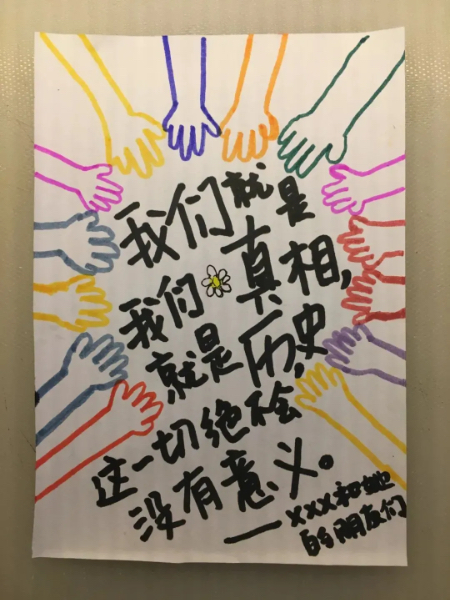 我们就是
真相,
我们
就是历史,
这一切绝不会
没有意义。
——xxx和她
的朋友们